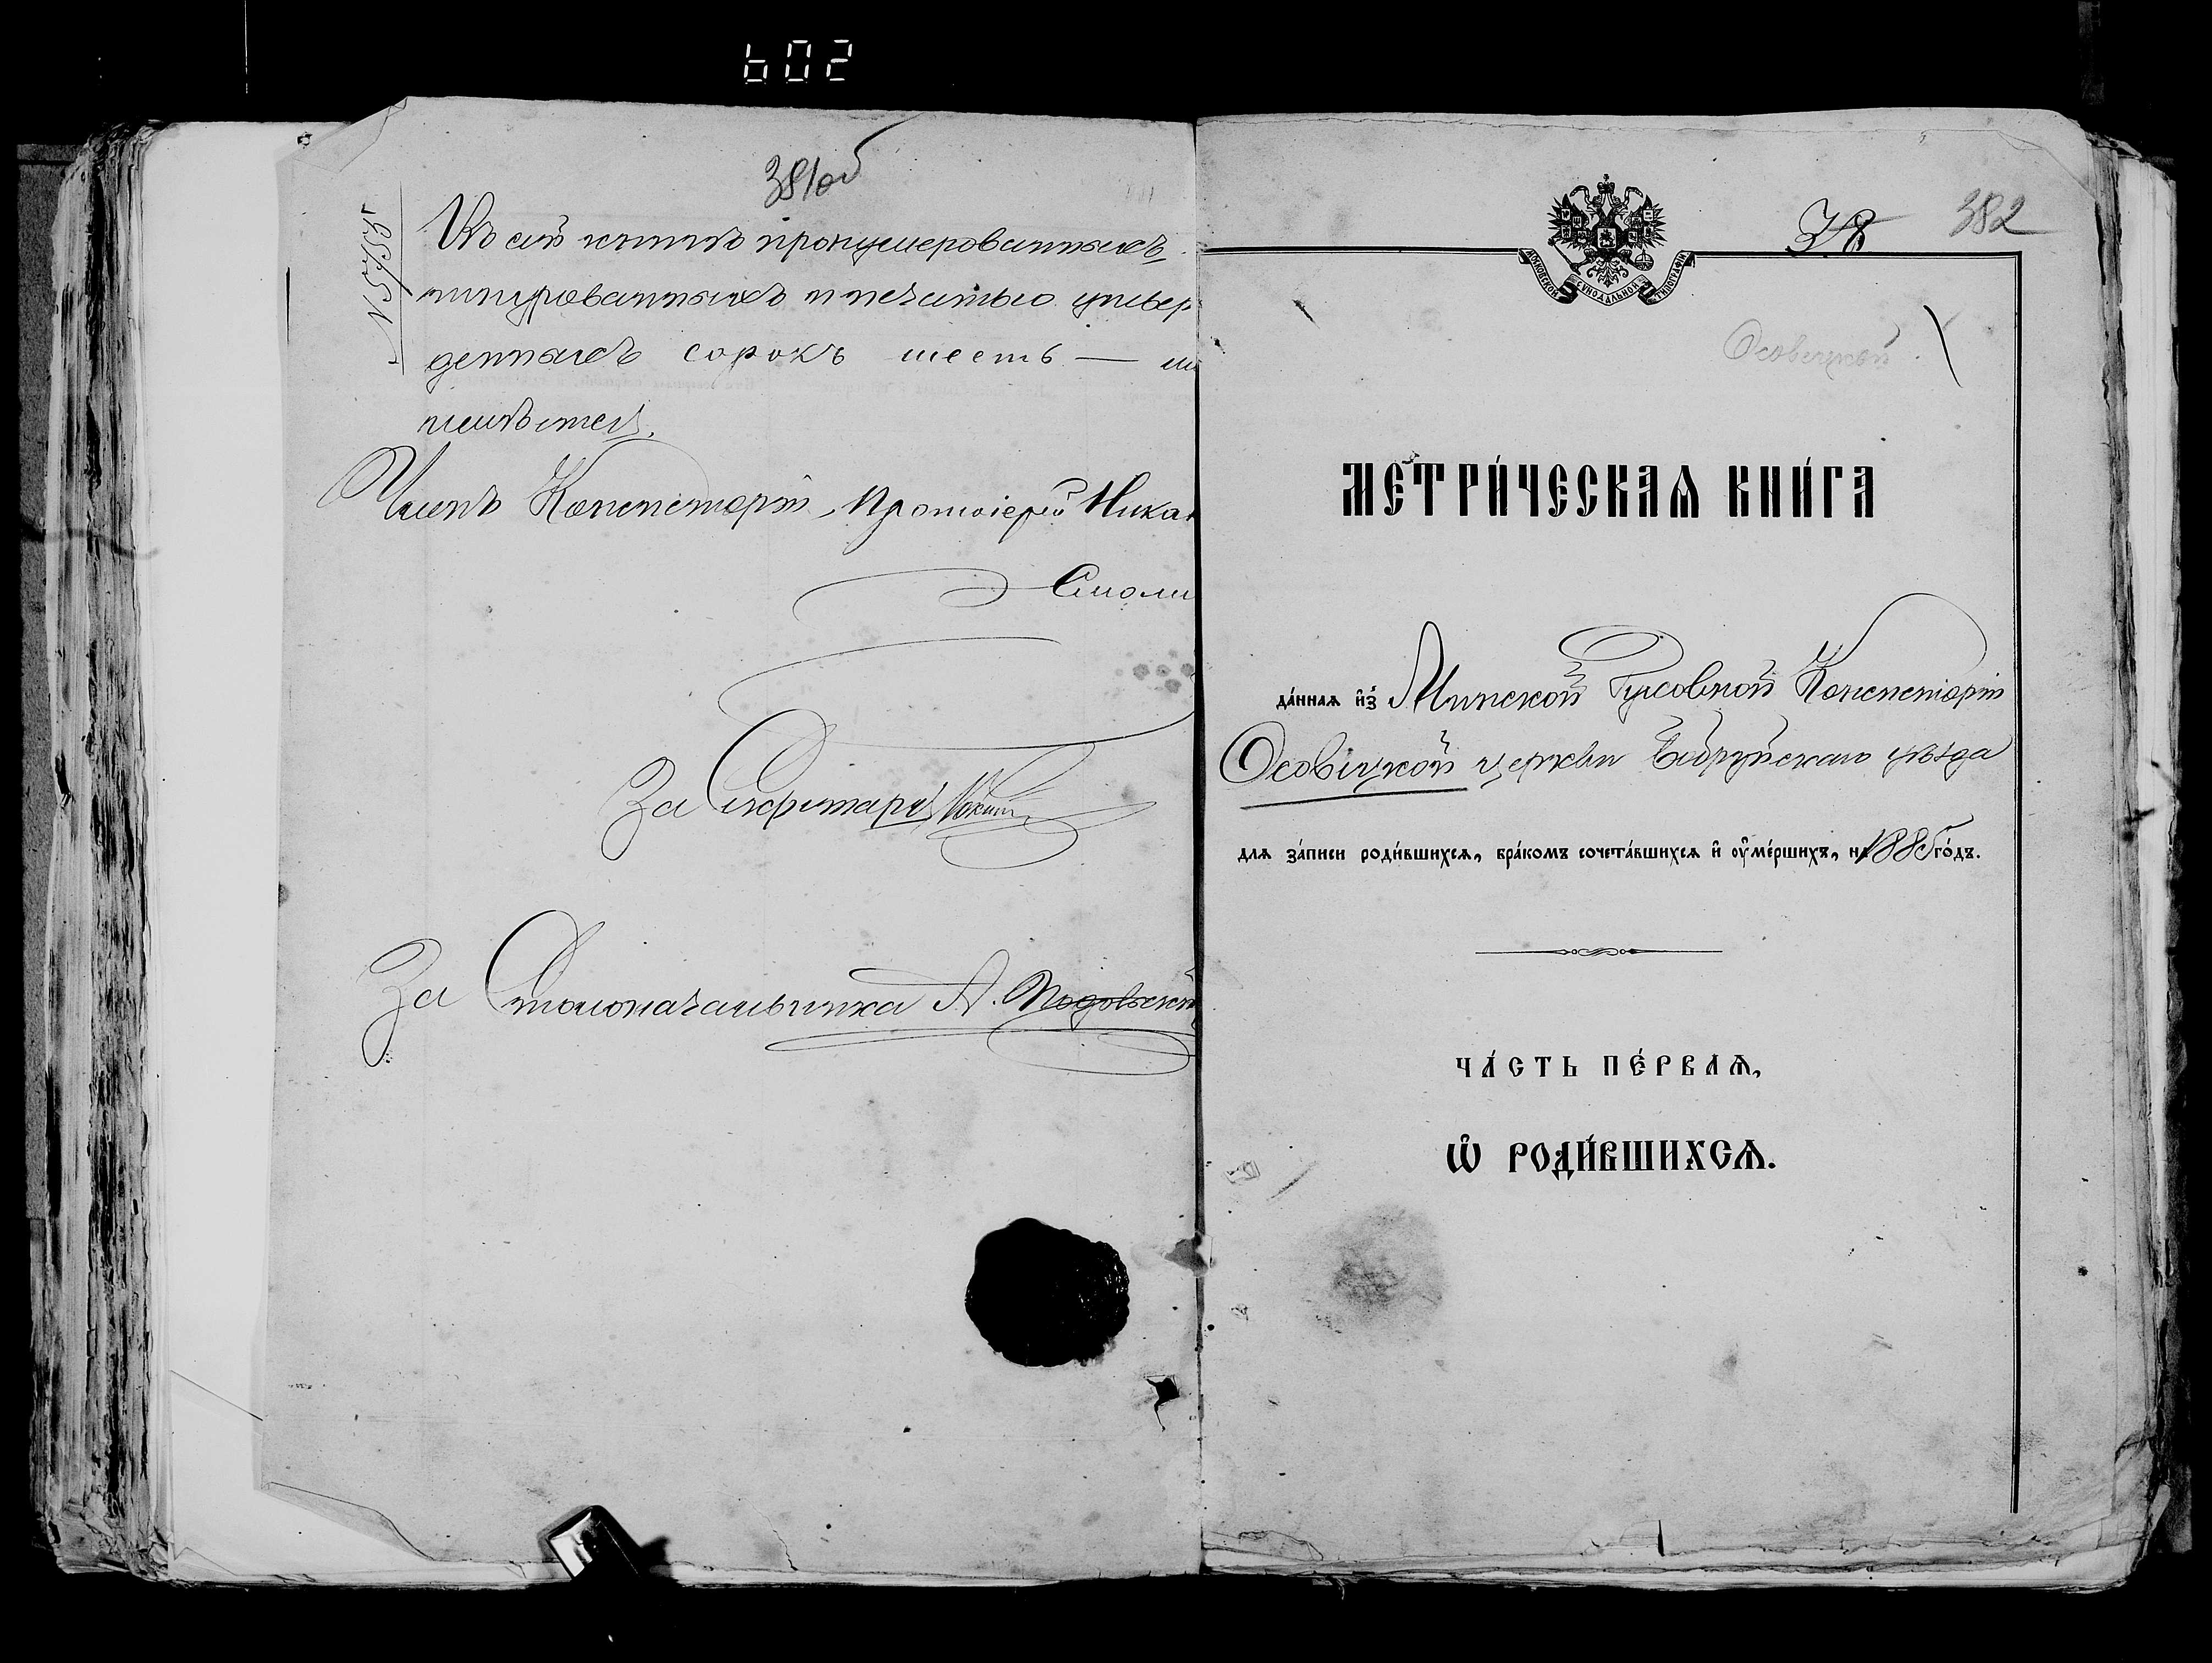 602
381об
№ 5755
Въ сей книгѣ пронумерованныхъ,
шнурованныхъ и печатью утвер
жденныхъ сорокъ шесть —
имѣется.
Членъ Консисторіи, Протоіерей Никан
Смоли
За Секретаря
За Столоначальника А.
38
382
МОСКОВСКОЙ СѴНОДАЛЬНОЙ ТИПОГРАФІИ
Осовецкой
МЕТРИ́ЧЕСКАѦ КНИ́ГА
да́ннаѧ и҆з̾ Минской Духовной Консисторіи
Осовецкой церкви Бобруйскаго уѣзда
длѧ за́писи роди́вшихсѧ, бра́комъ сочета́вшихсѧ и҆ ᲂу҆ме́ршихъ, на 1885 го́дъ.
ЧА́СТЬ ПЕ́РВАѦ,
Ѡ҆ РОДИ́ВШИХСѦ.